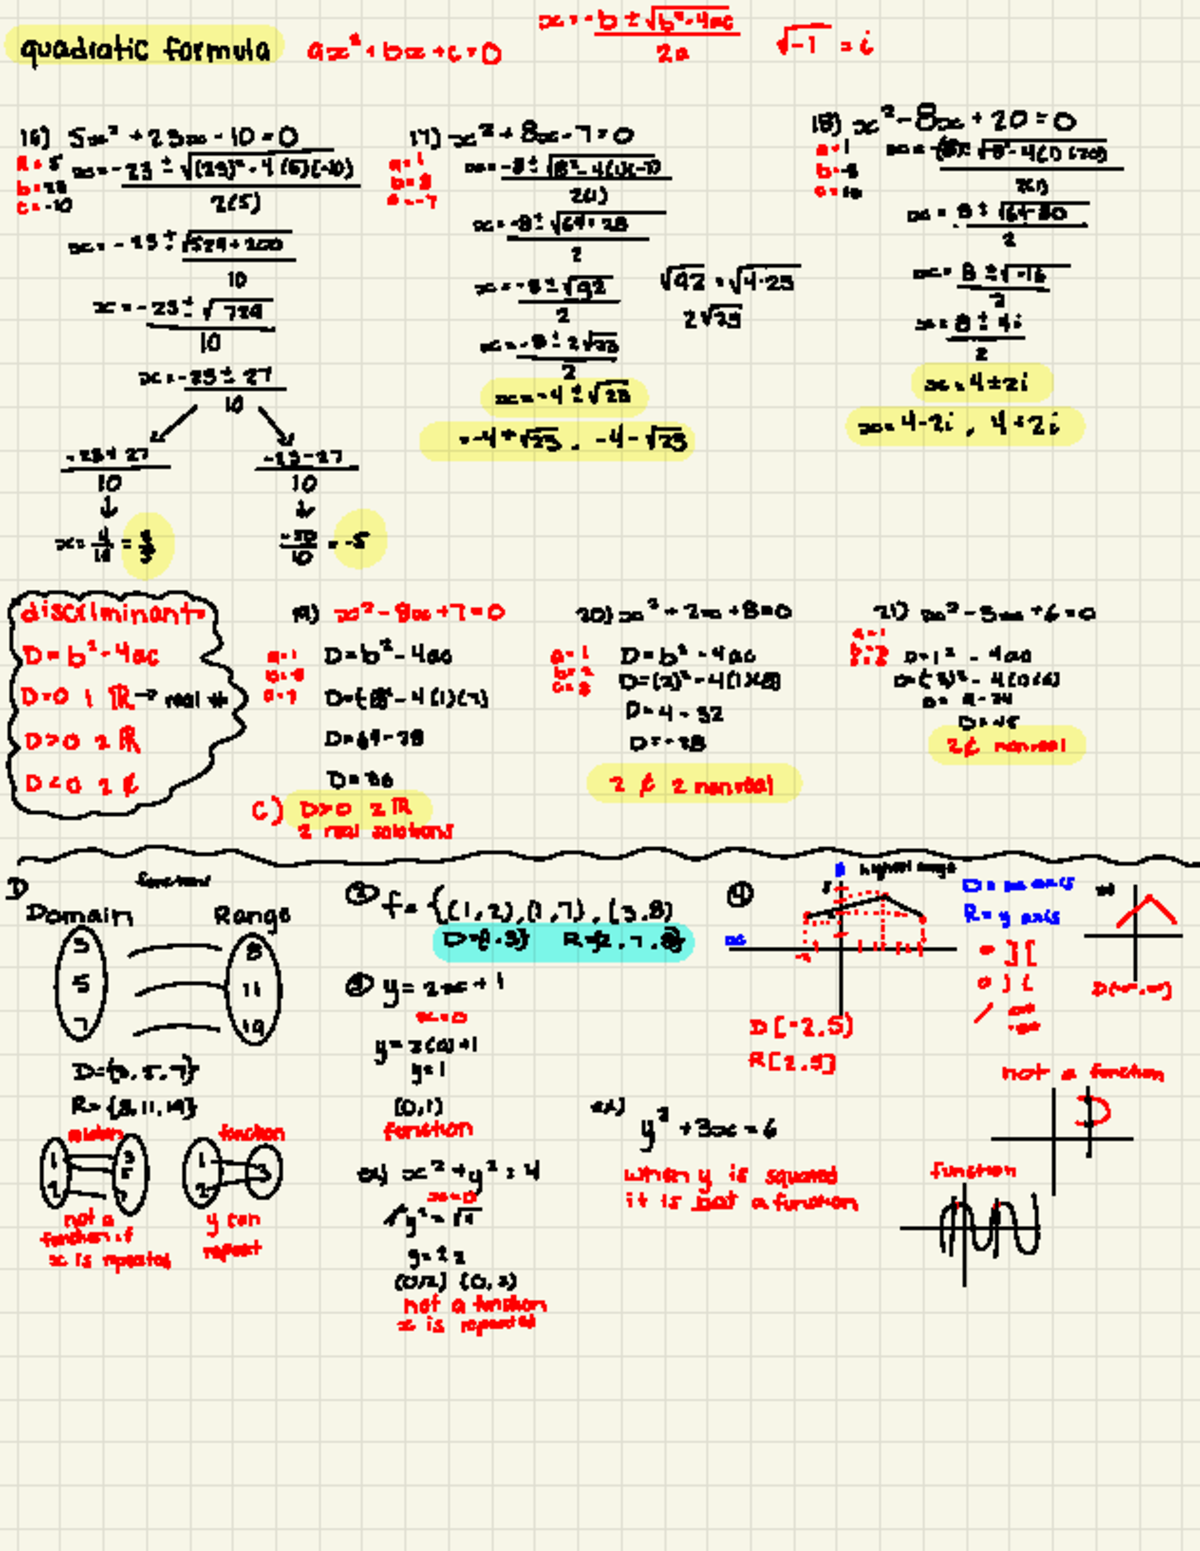 quadratic formula ax² + bx + c = 0
x = -b ± √b² - 4ac / 2a
√-1 = i
16) 5x² + 23x - 10 = 0
a = 5
b = 23
c = -10
x = -23 ± √(23)² - 4(5)(-10) / 2(5)
x = -23 ± √529 + 200 / 10
x = -23 ± √729 / 10
x = -23 ± 27 / 10
-23 + 27 / 10
-23 - 27 / 10
x = 4/10 = 2/5
-50/10 = -5
17) x² + 8x - 7 = 0
a = 1
b = 8
c = -7
x = -8 ± √8² - 4(1)(-7) / 2(1)
x = -8 ± √64 + 28 / 2
x = -8 ± √92 / 2
√92 = √4·23
2√23
x = -8 ± 2√23 / 2
x = -4 ± √23
= -4 + √23, -4 - √23
18) x² - 8x + 20 = 0
a = 1
b = -8
x = 8 ± √64 - 80 / 2
x = 8 ± √-16 / 2
x = 8 ± 4i / 2
x = 4 ± 2i
x = 4 - 2i, 4 + 2i
discriminant
D = b² - 4ac
D = 0 1 ℝ → real #
D > 0 2 ℝ
D < 0 2 ₵
19) x² - 8x + 7 = 0
a = 1
b = -8
c = 7
D = b² - 4ac
D = (-8)² - 4(1)(7)
D = 64 - 28
D = 36
C) D > 0 2 ℝ
2 real solutions
20) x² + 2x + 8 = 0
a = 1
b = 2
c = 8
D = b² - 4ac
D = (2)² - 4(1)(8)
D = 4 - 32
D = -28
2 ₵ 2 nonreal
21) x² - 3x + 6 = 0
a = 1
D = (-3)² - 4(1)(6)
D = 9 - 24
2 ₵ nonreal
1) function
Domain Range
3 8
5 11
7 19
D = {3, 5, 7}
R = {8, 11, 19}
function
1 3
2 5
7
1 3
2
not a
function if
x is repeated
y can
repeat
② f = {(1, 2), (1, 7), (3, 8)
D = {1, 3} R = {2, 7, 8}
③ y = 2x + 1
x = 0
y = 2(0) + 1
y = 1
(0, 1)
function
ex) x² + y² = 4
x = 0
√y² = √4
y = ± 2
(0, 2) (0, 2)
not a function
x is repeated
④
highest range
D = x axis
R = y axis
D [-2, 5)
R [2, 5]
] [
) (
D(-∞, ∞)
ex)
y² + 3x = 6
when y is squared
it is not a function
not a function
function